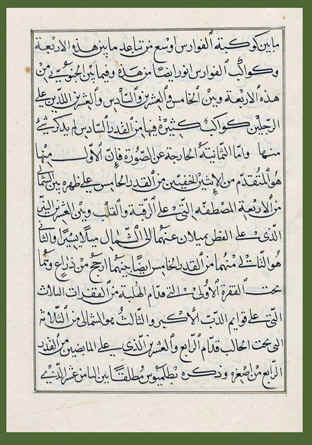 ما بين كوكبة الفوارس اوسع من تباعد ما بين هذه الاربعة
وكواكب الفوارس انور ايضا من هذه وفيما بين الجنوبي من
هذه الاربعة وبين الخامس والعشرين والسادس والعشرين اللذين على
الرجلين كواكب كثيرة فيها من القدر السادس لم يذكر شيء
منها واما الثمانية الخارجة عن الصورة فان الاول منها
هو المتقدم من الاثنين الخفيين من القدر الخامس على ظهره بين الشمالي
من الاربعة المصطفة التي على الرقبة والذنب وبين العشرين
الذي على القطن ميلان عنهما الى الشمال ميلا يسيرا والثاني
هو الثالث منهما من القدر الخامس ايضا بينهما ارجح من ذراع وهما
تحت الفقرة الاولى التي قدام الهلبة من الفقرات الثلاث
التي على قوايم الدب الاكبر والثالث هو الشمالي من الثلاثة
التي تحت الحالب قدام الرابع والعشرين الذي على المابضين من القدر
الرابع من اصغره وذكره بطلميوس مطلقا بين الثامن عشر الذي